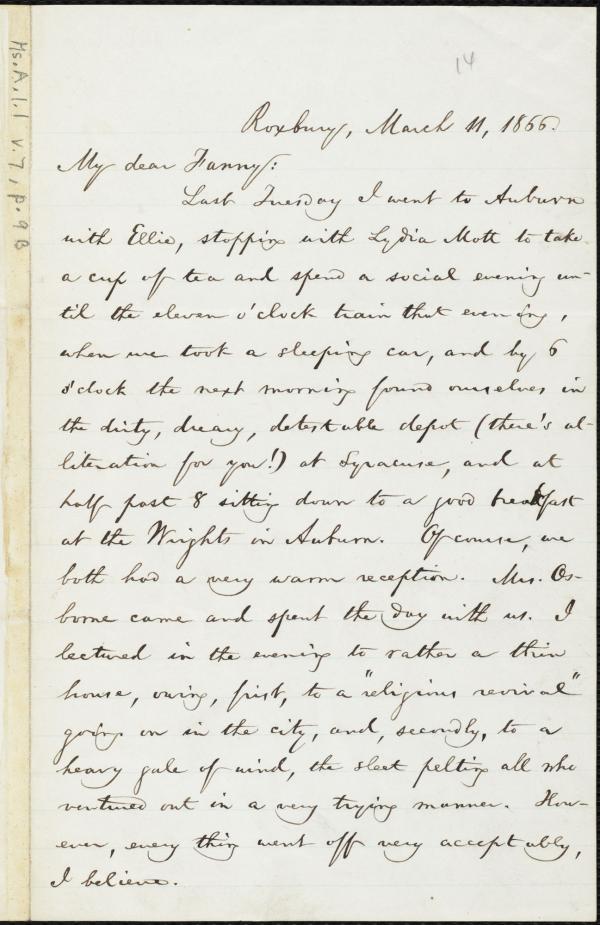 14
Ms. A. 1. 1 v. 7, p. 9B
Roxbury, March 11, 1866.
My dear Fanny:
Last Tuesday I went to Auburn
with Ellie, stopping with Lydia Mott to take
a cup of tea and spend a social evening un-
til the eleven o'clock train that evening,
when we took a sleeping car, and by 6
o'clock the next morning found ourselves in
the dirty, dreary, detestable depot (there's al-
literation for you!) at Syracuse, and at
half past 8 sitting down to a good breakfast
at the Wrights in Auburn. Of course, we
both had a very warm reception. Mrs. Os-
borne came and spent the day with us. I
lectured in the evening to rather a thin
house, owing, first, to a "religious revival"
going on in the city, and, secondly, to a
heavy gale of wind, the sleet pelting all who
ventured out in a very trying manner. How-
ever, every thing went off very acceptably,
I believe.